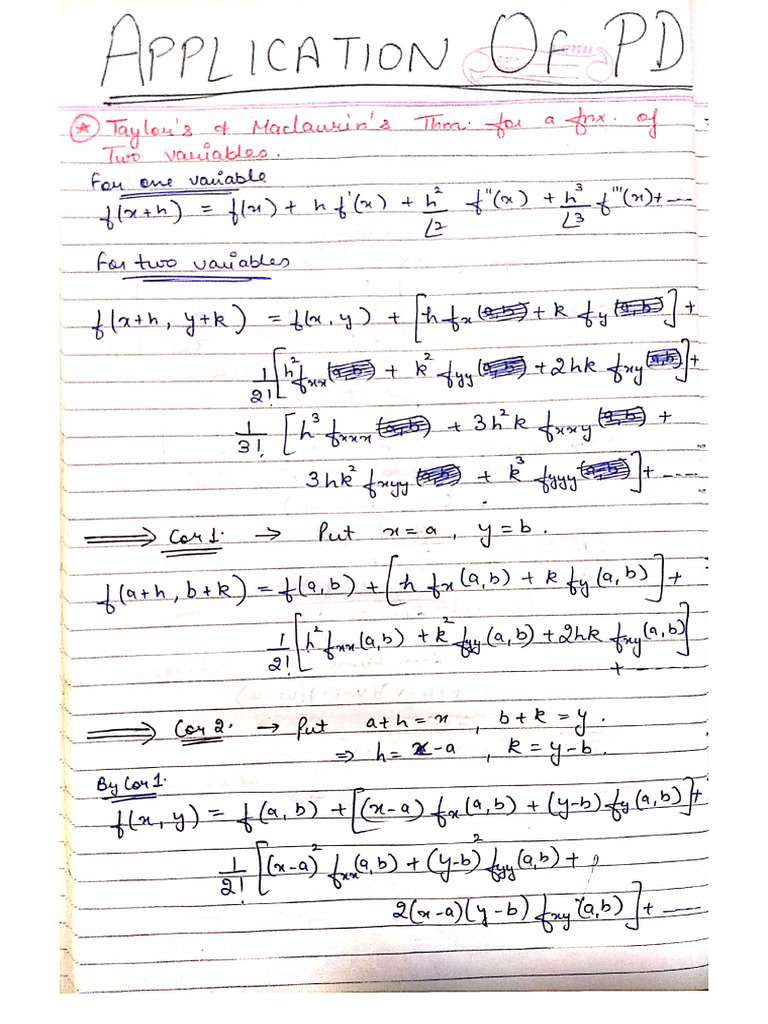 APPLICATION OF PD
⊛ Taylor's & Maclaurin's Thm. for a fnx. of
Two variables.
For one variable
f(x+h) = f(x) + h f'(x) + h²/∟2 f''(x) + h³/∟3 f'''(x) + ----
For two variables
f(x+h, y+k) = f(x,y) + [h fx + k fy] +
1/2! [h² fxx + k² fyy + 2hk fxy] +
1/3! [h³ fxxx + 3h²k fxxy +
3hk² fxyy + k³ fyyy] + ----
⟹ Cor 1: → Put x=a, y=b.
f(a+h, b+k) = f(a,b) + [h fx(a,b) + k fy(a,b)] +
1/2! [h² fxx(a,b) + k² fyy(a,b) + 2hk fxy(a,b)]
+ ----
⟹ Cor 2. → Put a+h=x, b+k=y.
⇒ h=x-a, k=y-b.
By Cor 1.
f(x,y) = f(a,b) + [(x-a) fx(a,b) + (y-b) fy(a,b)] +
1/2! [(x-a)² fxx(a,b) + (y-b)² fyy(a,b) +
2(x-a)(y-b) fxy(a,b)] + ----